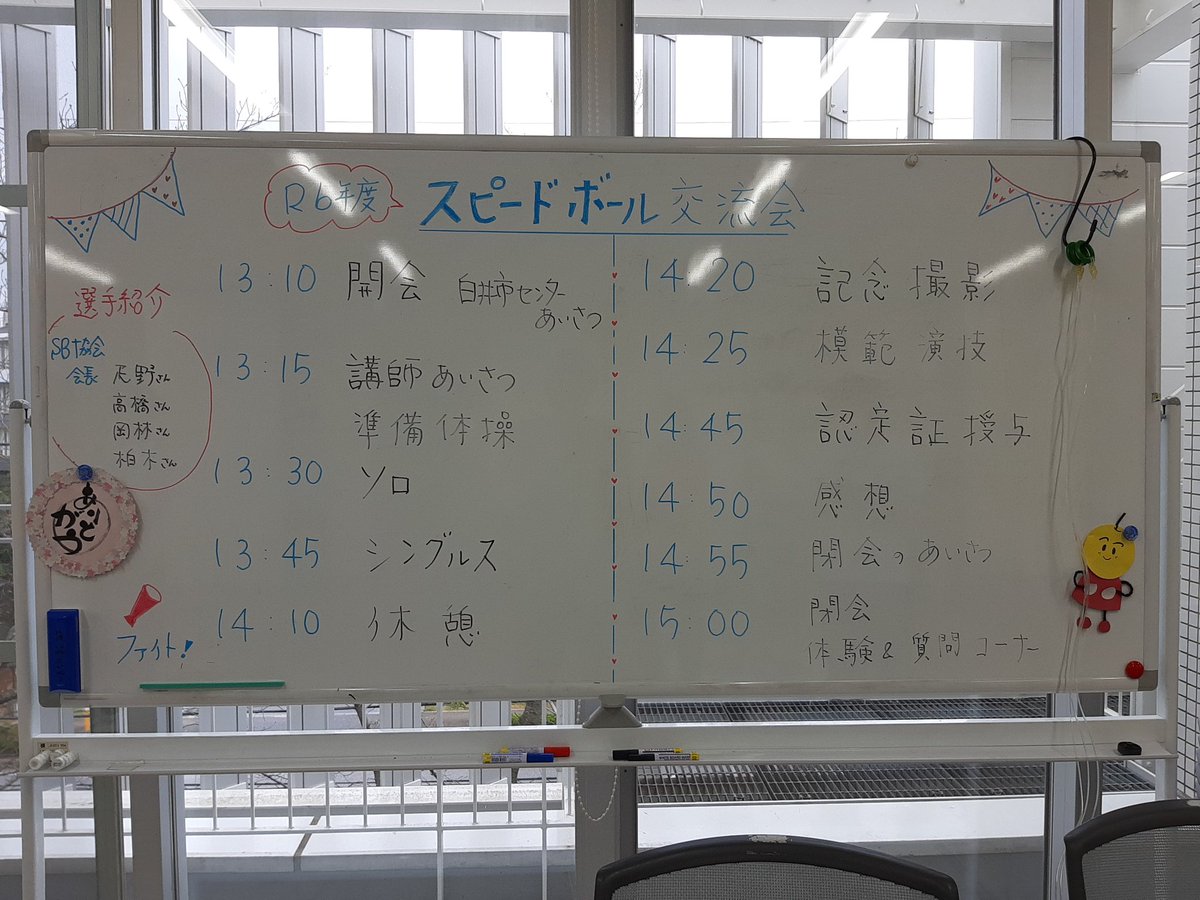 R6年度 スピードボール交流会
選手紹介
SB協会
会長 天野さん
高橋さん
岡林さん
柏木さん
ありとがう
ファイト!
13:10 開会 白井市センター
あいさつ
13:15 講師あいさつ
準備体操
13:30 ソロ
13:45 シングルス
14:10 休憩
14:20 記念撮影
14:25 模範演技
14:45 認定証授与
14:50 感想
14:55 閉会のあいさつ
15:00 閉会
体験&質問コーナー